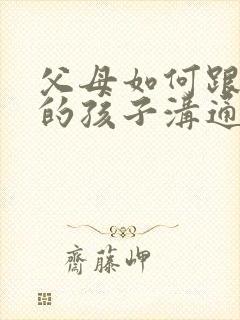 父母如何跟
的孩子溝通
齋藤岬